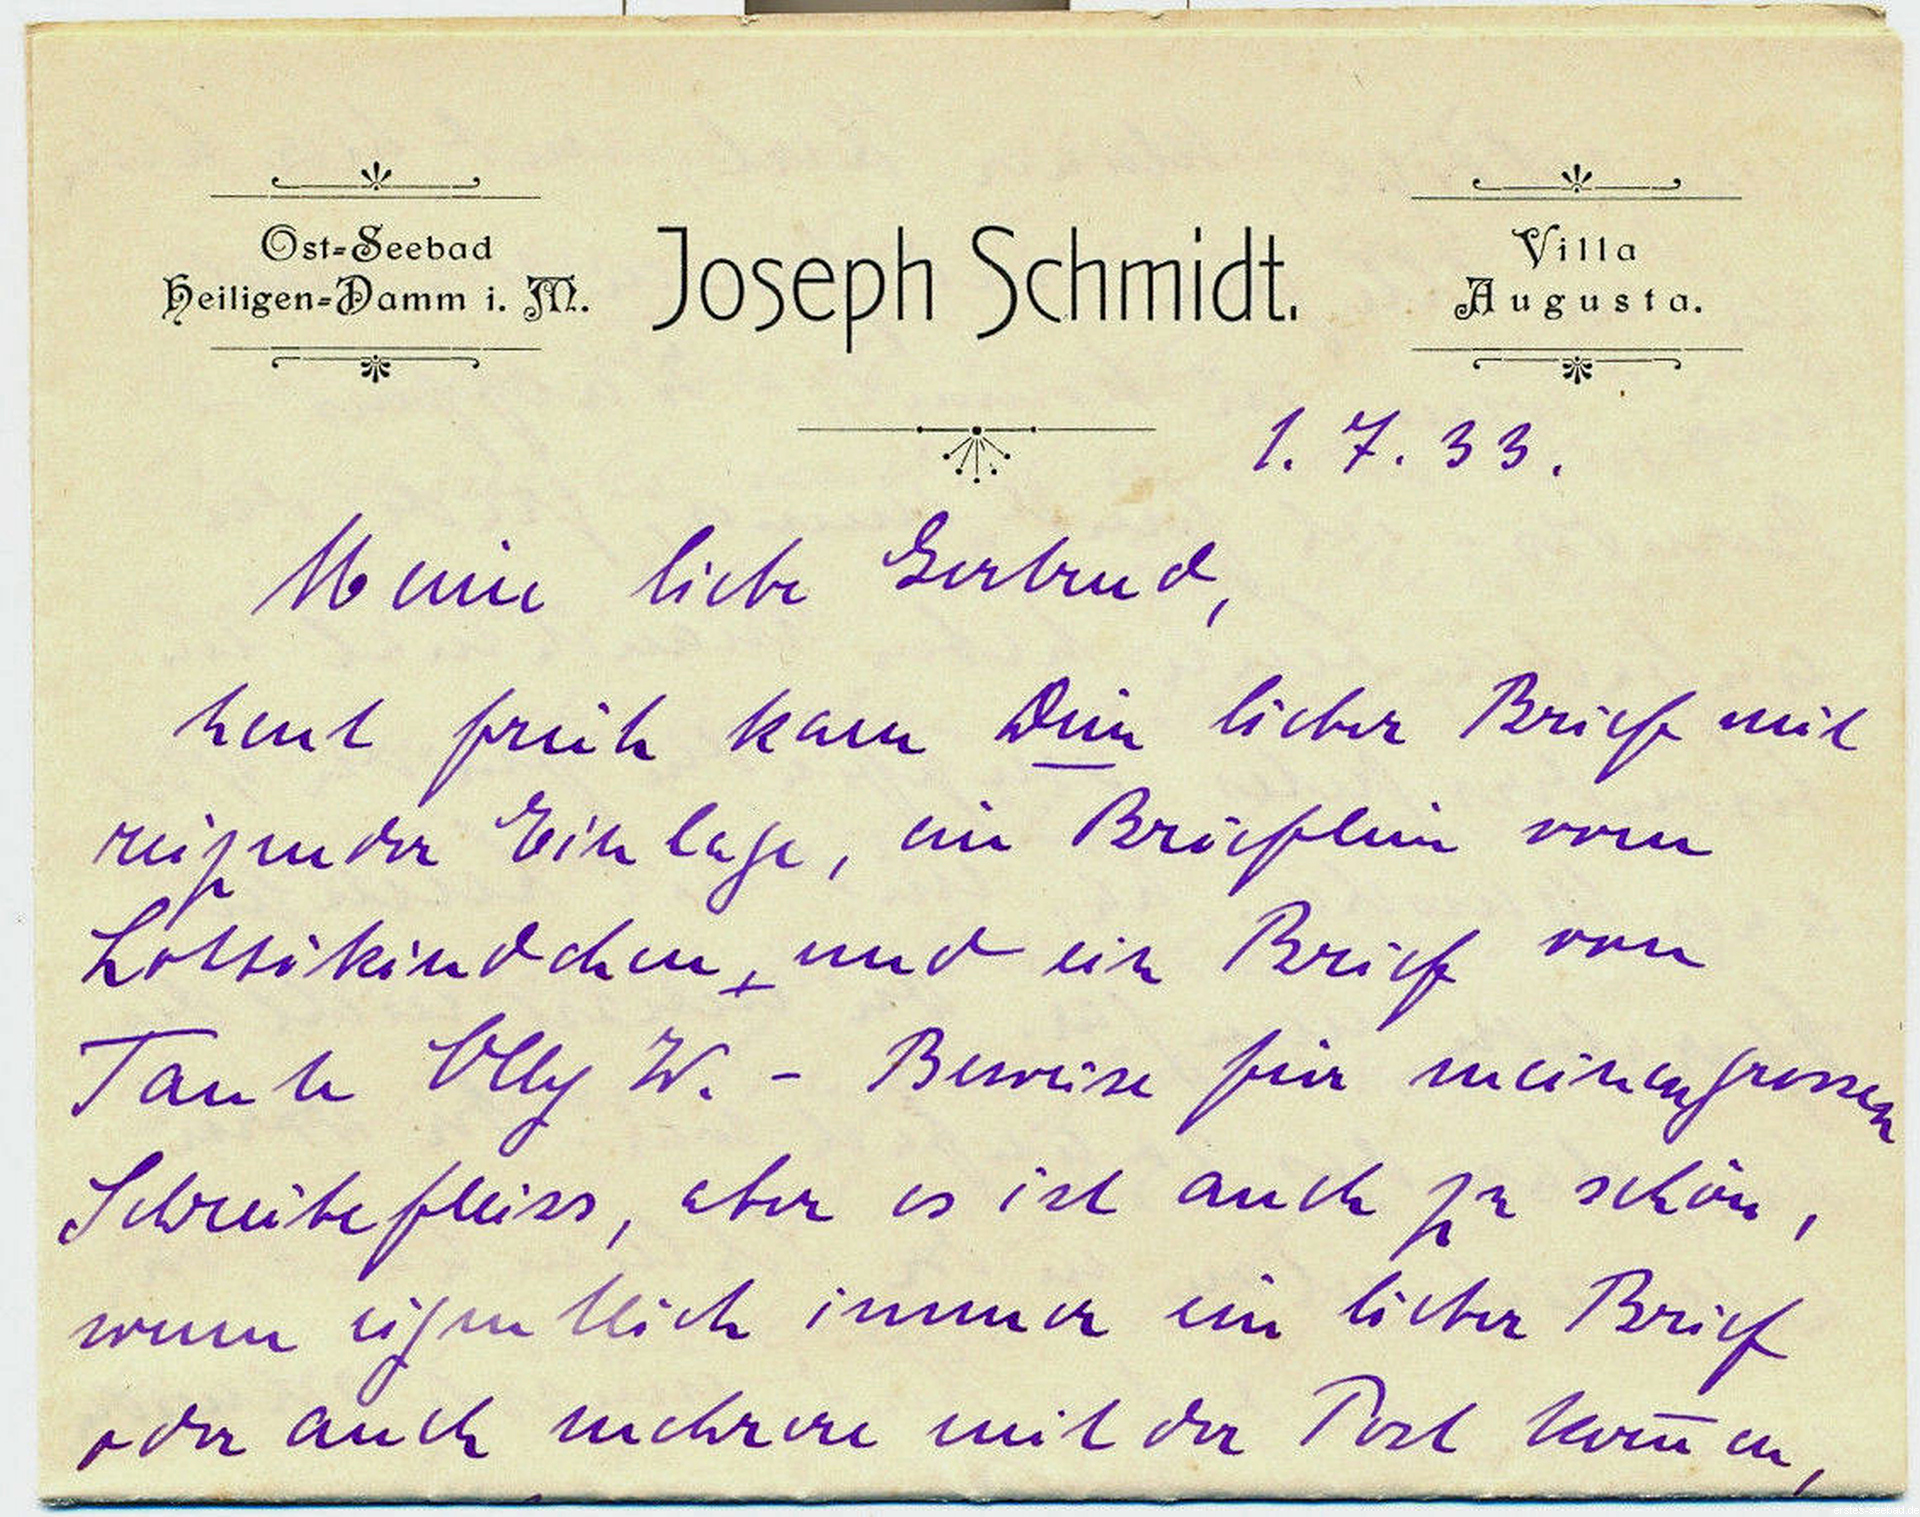 Ost=Seebad
Heiligen=Damm i. M.
Joseph Schmidt.
Villa
Augusta.
1. 7. 33.
Meine liebe Gertrud,
heut früh kam Dein lieber Brief mit
reizender Einlage, ein Brieflein vom
Lottikindchen, und ein Brief von
Tante Olly W. – Beweise für meinen grossen
Schreibefleiss, aber es ist auch zu schön,
wenn eigentlich immer ein lieber Brief
oder auch mehrere mit der Post kom̄en,